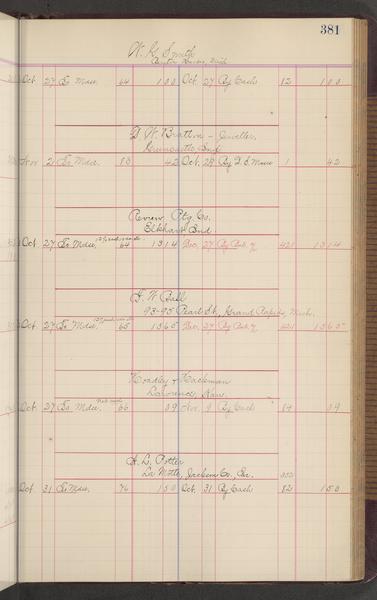 381
W. G. Smith
Mich
Oct. 27 To Mdse. 64 1 00 Oct. 27 By Cash 82 1 00
D. W. Bratton - Jeweller,
Greencastle, Ind
Nov 2 To Mdse. 80 42 Oct. 28 By 1 42
Review Ptg. Co.
Elkhart Ind.
Oct. 27 To Mdse. 64 13 14 Dec. 27 By Bal. 421 13 14
F. W. Ball
93-95 Pearl St., Grand Rapids, Mich.
Oct. 27 To Mdse. 65 13 65 Dec. 27 By Bal. 421 13 65
Hoadley & Hackman
Lawrence, Kan.
Oct. 27 To Mdse. 66 09 Nov. 9 By Cash 84 09
A. L. Potter
La Motte, Jackson Co., Ia.
Oct. 31 To Mdse. 76 1 50 Oct. 31 By Cash 82 1 50